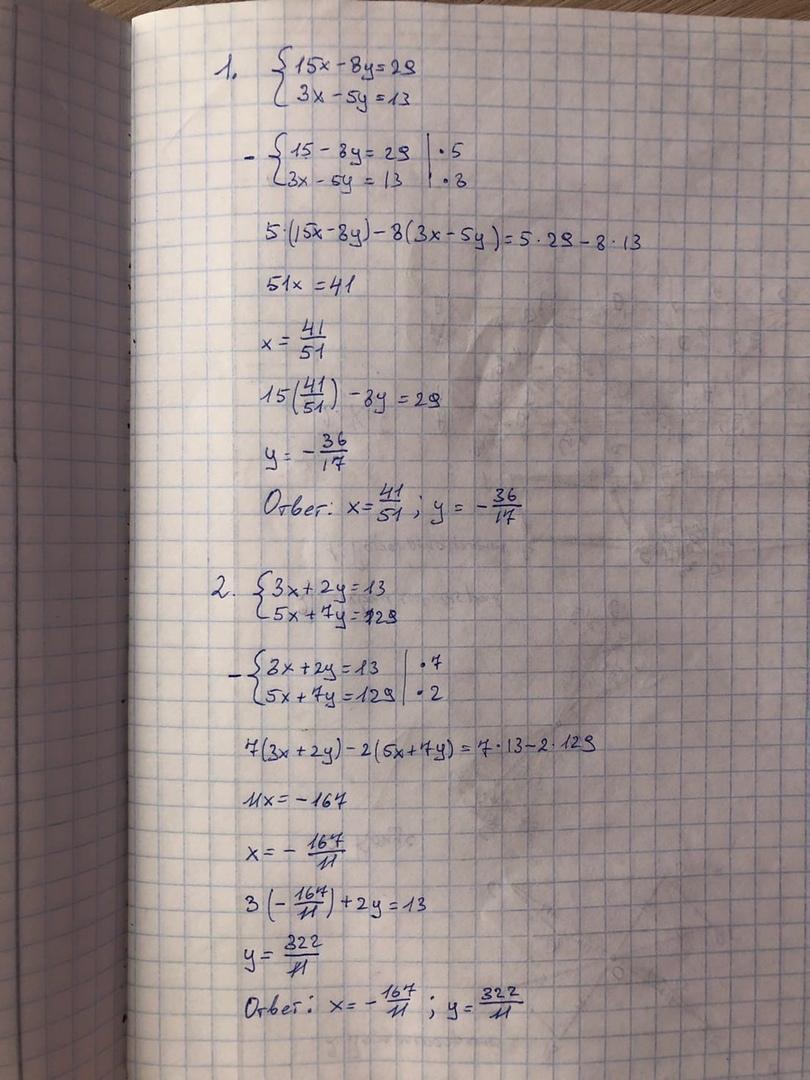 1. { 15x - 8y = 29
3x - 5y = 13
- { 15 - 8y = 29 | · 5
3x - 5y = 13 | · 8
5·(15x - 8y) - 8(3x - 5y) = 5 · 29 - 8 · 13
51x = 41
x = 41/51
15(41/51) - 8y = 29
y = - 36/17
Ответ: x = 41/51 ; y = - 36/17
2. { 3x + 2y = 13
5x + 7y = 129
- { 3x + 2y = 13 | · 7
5x + 7y = 129 | · 2
7(3x + 2y) - 2(5x + 7y) = 7 · 13 - 2 · 129
11x = - 167
x = - 167/11
3(- 167/11) + 2y = 13
y = 322/11
Ответ: x = - 167/11 ; y = 322/11